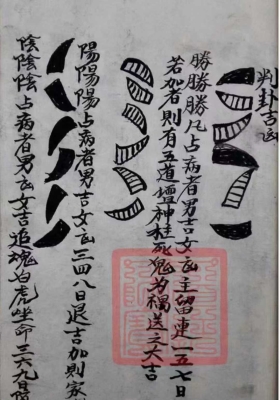 判卦吉凶
勝勝勝凡占病者男吉女凶主留連一五七日
若加者則有五道壇神枉死鬼为禍送之大吉
陽陽陽占病者男吉女凶三四八日退吉加則家
陰陰陰占病者男凶女吉追魂白虎坐命三六九日